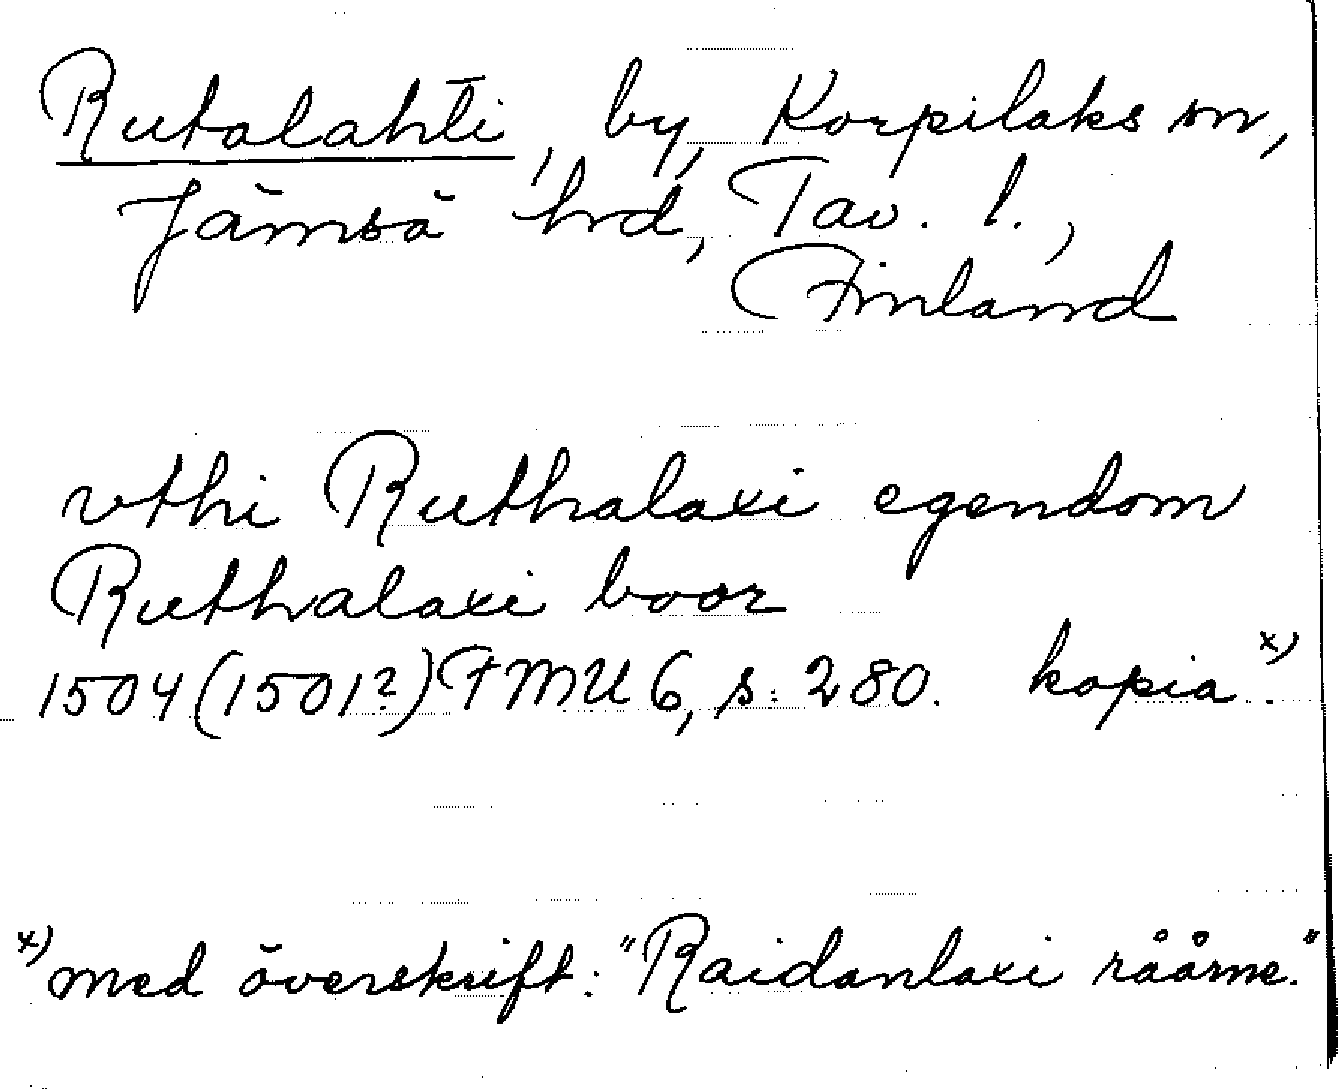 Rutalahti, by, Korpilaks sn,
Jämsä hrd, Tav. l.,
Finland
vthi Ruthalaxi egendom
Ruthalaxi boor
1504 (1501?) FMU 6, s. 280. kopia.x)
x) med överskrift: "Raidanlaxi råårne."